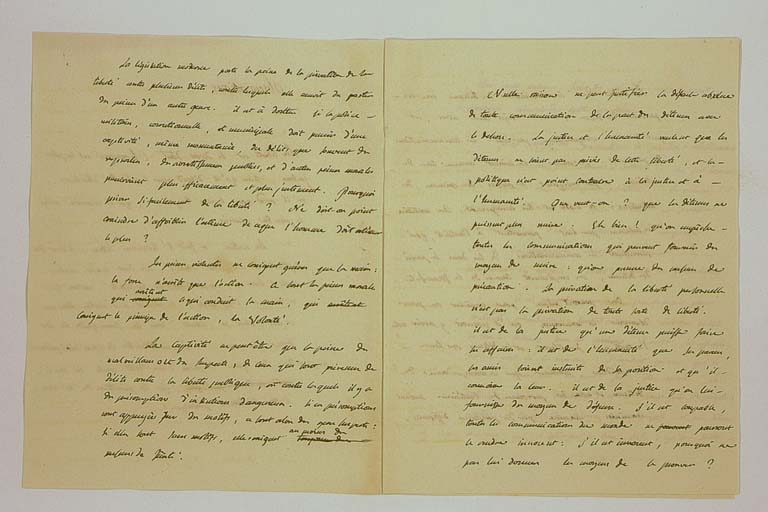 La législation moderne porte la peine de la privation de la
liberté contre plusieurs délits, contre lesquels elle aurait dû porter
des peines d'un autre genre. il est à douter si la police
militaire, correctionnelle, et municipale doit punir d'une
captivité, même momentanée, des délits que souvent des
reproches, des avertissemens publics, et d'autres peines morales
puniraient plus efficacement et plus justement. Pourquoi
priver si facilement de la liberté ? Ne doit-on point
craindre d'affaiblir l'estime de ce que l'homme doit estimer
le plus ?
Les peines violentes ne corrigent guères que la main :
la force n'arrête que l'action. Ce sont les peines morales
qui arrêtent ce qui conduit la main, qui
corrigent le principe de l'action, la Volonté.
La captivité ne peut être que la peine des
malveillans ou des suspects, de ceux qui sont prévenus de
délits contre la liberté publique, ou contre lesquels il y a
des présomptions d'intentions dangereuses. Si ces présomptions
sont appuyées sur des motifs, ce sont alors des gens suspects :
si elles sont sans motifs, elles exigent au moins des
mesures de sûreté.
Nulle raison ne peut justifier la défense absolue
de toute communication de la part des détenus avec
le dehors. La justice et l'humanité veulent que les
détenus ne soient pas privés de cette liberté, et la
politique n'est point contraire à la justice et à
l'humanité. Que veut-on ? que les détenus ne
puissent plus nuire. Eh bien ! qu'on empêche
toutes les communications qui peuvent fournir des
moyens de nuire : qu'on prenne des mesures de
précaution. La privation de la liberté personnelle
n'est pas la privation de toute sorte de liberté.
il est de la justice qu'un détenu puisse faire
ses affaires : il est de l'humanité que ses parens,
ses amis soient instruits de sa position et qu'il
connaisse la leur. il est de la justice qu'on lui
fournisse des moyens de défense. S'il est coupable,
toutes les communications du monde ne peuvent pas
le rendre innocent : s'il est innocent, pourquoi ne
pas lui donner les moyens de le prouver ?